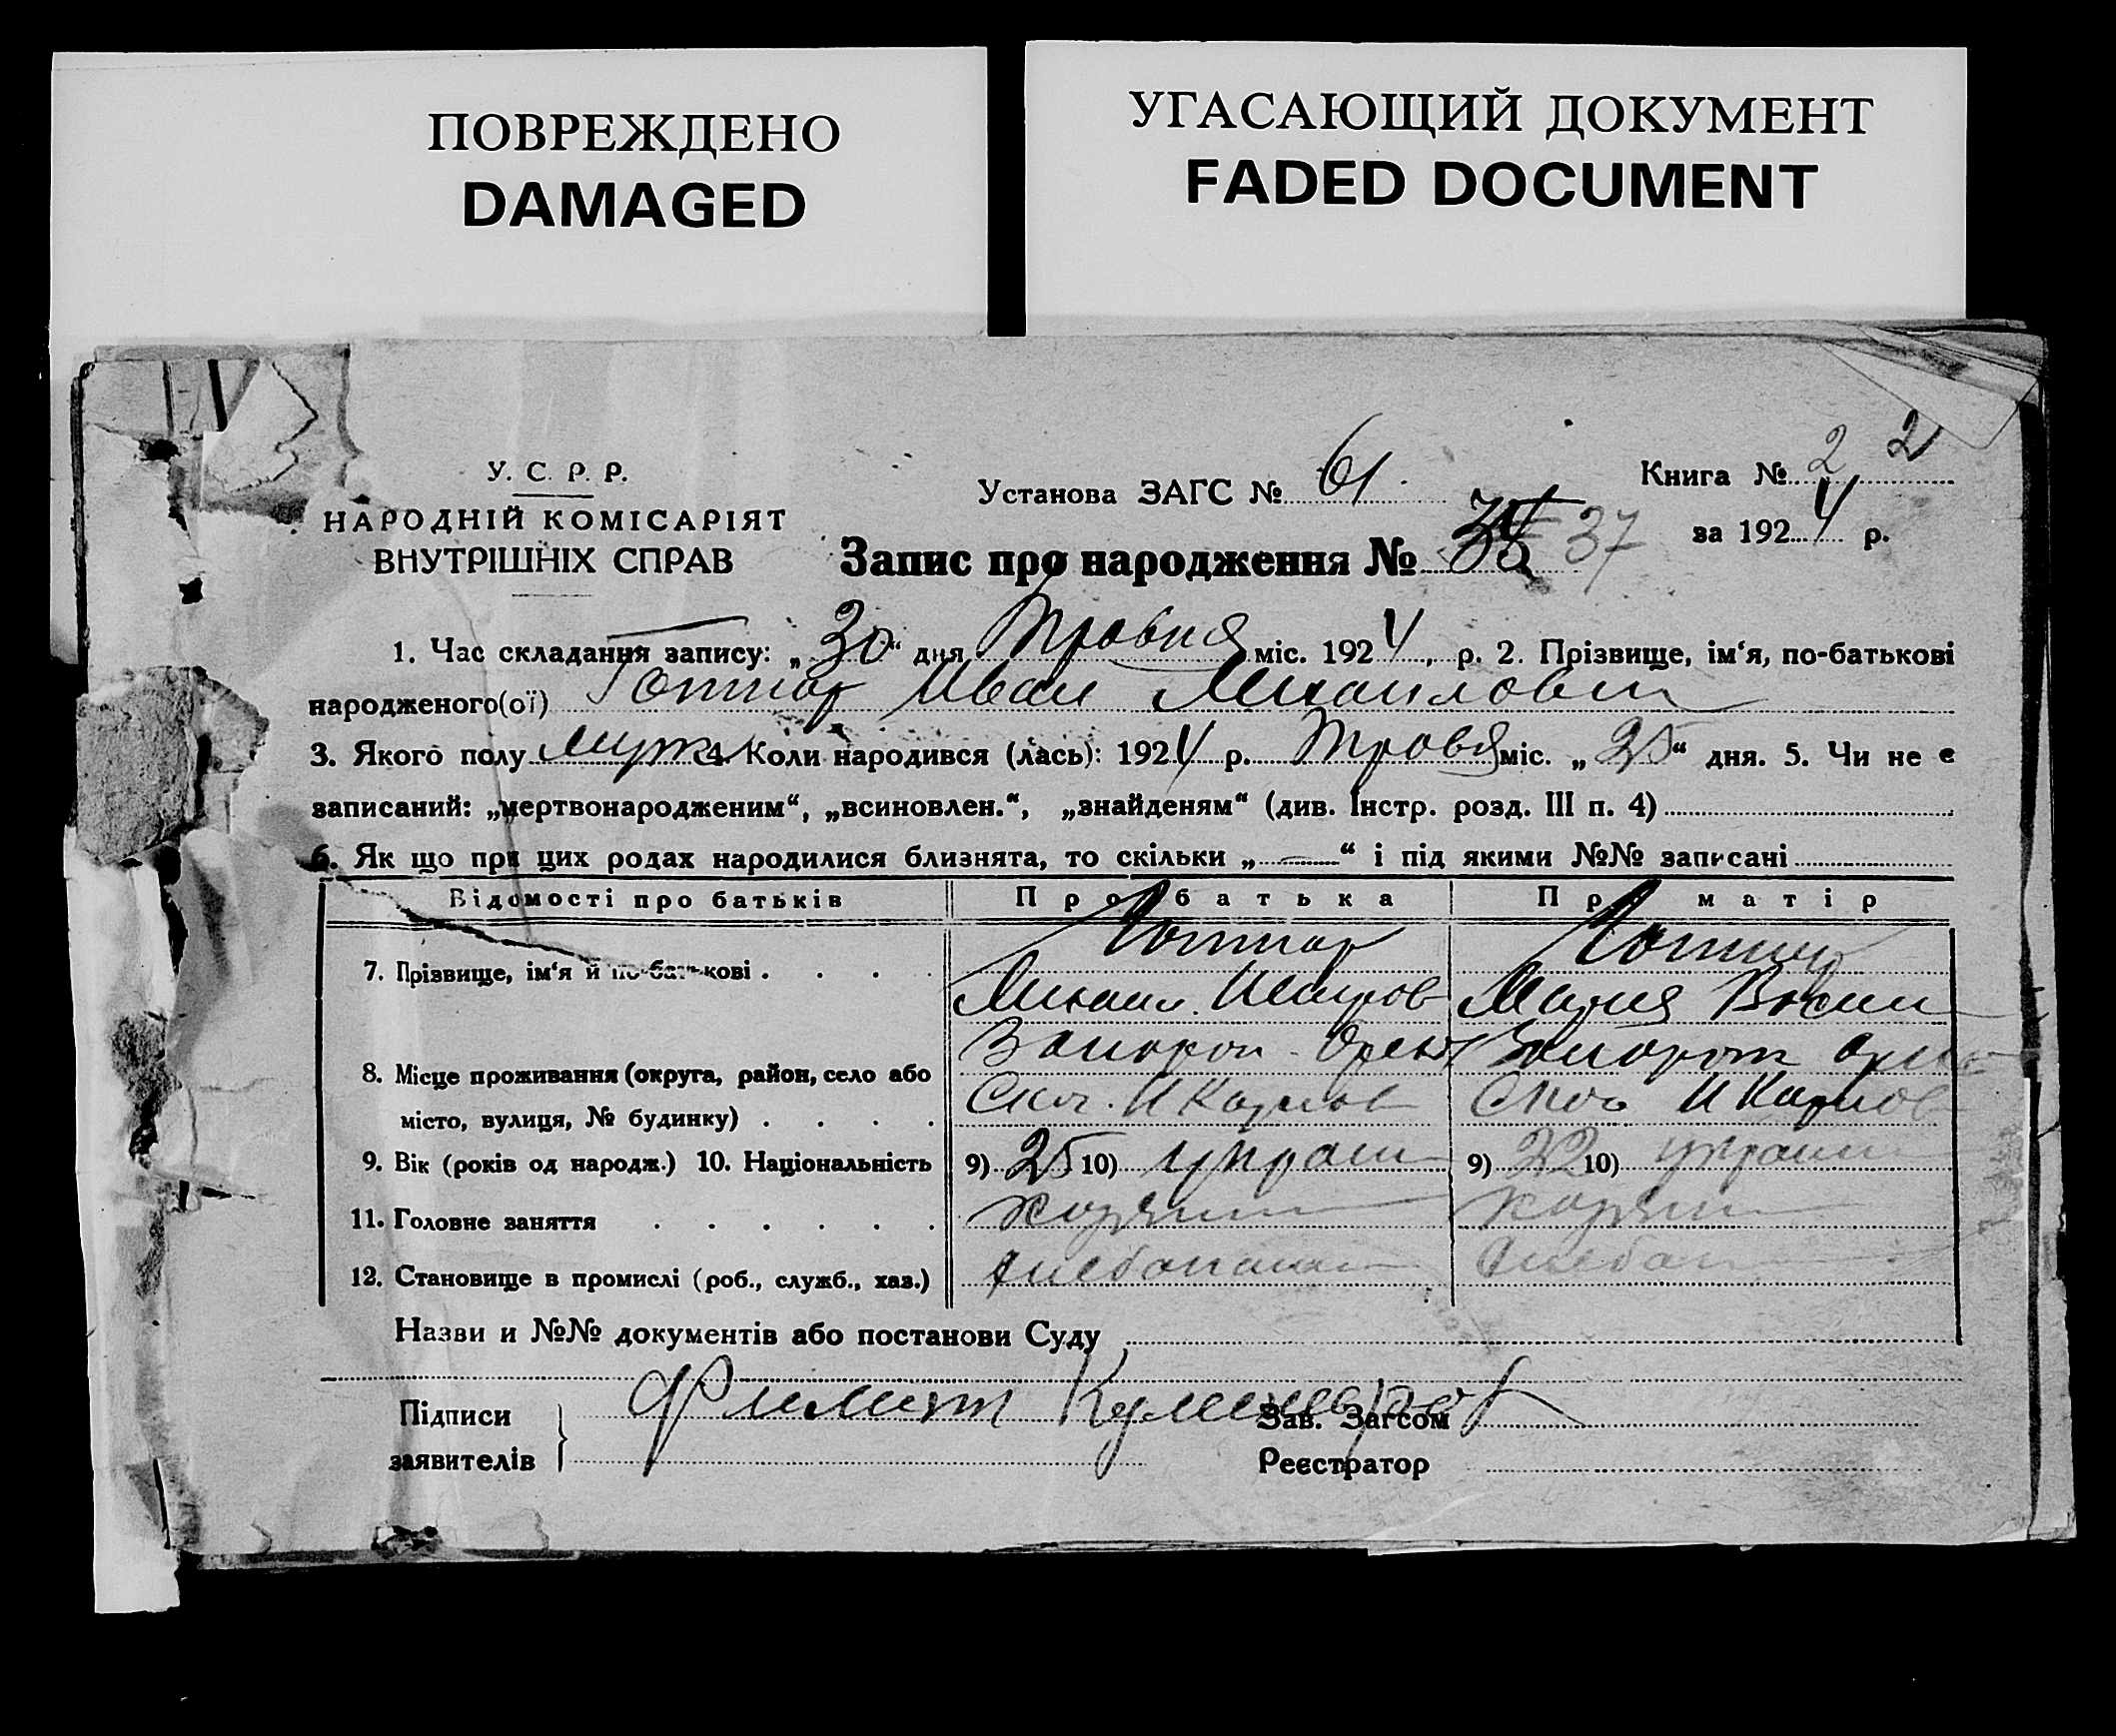 ПОВРЕЖДЕНО
DAMAGED
УГАСАЮЩИЙ ДОКУМЕНТ
FADED DOCUMENT
У. С. Р. Р.
НАРОДНІЙ КОМІСАРІЯТ
ВНУТРІШНІХ СПРАВ
Установа ЗАГС № 61.
Книга № 2 2
за 1924 р.
Запис про народження № 37
1. Час складання запису: „30“ дня Травня міс. 1924, р. 2. Прізвище, ім‘я, по-батькові
народженого(ої) Готтар Иван Михаилович
3. Якого полу муж 4. Коли народився (лась): 1924 р. Травня міс. „25“ дня. 5. Чи не є
записаний: „мертвонародженим“, „всиновлен.“, „знайденям“ (див. Інстр. розд. III п. 4)
6. Як що при цих родах народилися близнята, то скільки „—“ і під якими №№ записані
Відомості про батьків Про батька Про матір
7. Прізвище, ім‘я й по-батькові . . . . Готтар Готтар
Михаил Мария
8. Місце проживання (округа, район, село або
місто, вулиця, № будинку) . . . .
9. Вік (років од народж.) 10. Національність 9) 25 10) украин 9) 22 10) украин
11. Головне заняття . . . . . .
12. Становище в промислі (роб., служб., хаз.)
Назви и №№ документів або постанови Суду
Підписи
заявителів
Зав. Загсом
Реєстратор